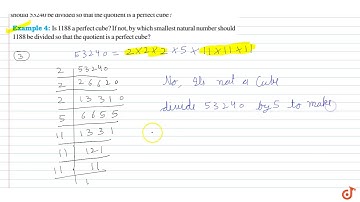 should 53240 be divided so that the quotient is a perfect cube?
Example 4: Is 1188 a perfect cube? If not, by which smallest natural number should
1188 be divided so that the quotient is a perfect cube?
3 53240 = 2×2×2 ×5 × 11×11×11
2 53240
2 26620
2 13310
5 6655
11 1331
11 121
11 11
1
No, its not a cube
divide 53240 by 5 to make